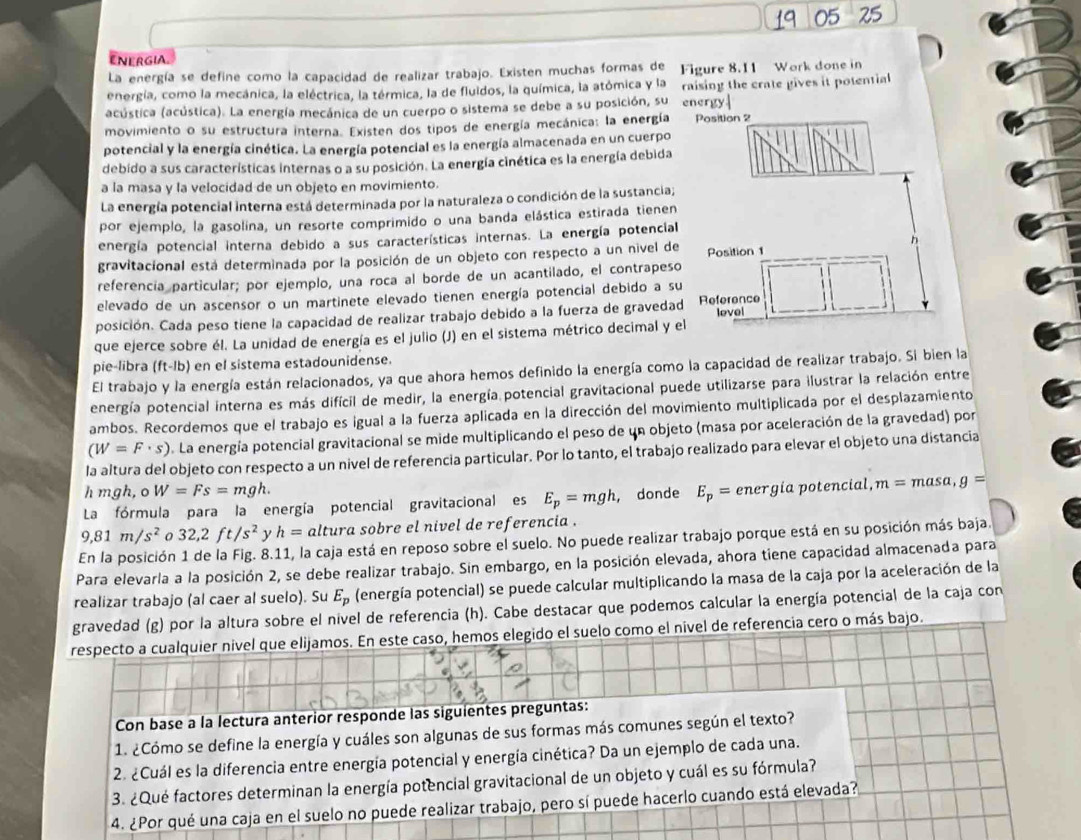 19 05 25
ENERGIA.
La energía se define como la capacidad de realizar trabajo. Existen muchas formas de
energía, como la mecánica, la eléctrica, la térmica, la de fluidos, la química, la atómica y la
acústica (acústica). La energía mecánica de un cuerpo o sistema se debe a su posición, su
movimiento o su estructura interna. Existen dos tipos de energía mecánica: la energía
potencial y la energía cinética. La energía potencial es la energía almacenada en un cuerpo
debido a sus características internas o a su posición. La energía cinética es la energía debida
a la masa y la velocidad de un objeto en movimiento.
La energía potencial interna está determinada por la naturaleza o condición de la sustancia;
por ejemplo, la gasolina, un resorte comprimido o una banda elástica estirada tienen
energía potencial interna debido a sus características internas. La energía potencial
gravitacional está determinada por la posición de un objeto con respecto a un nivel de
referencia particular; por ejemplo, una roca al borde de un acantilado, el contrapeso
elevado de un ascensor o un martinete elevado tienen energía potencial debido a su
posición. Cada peso tiene la capacidad de realizar trabajo debido a la fuerza de gravedad
que ejerce sobre él. La unidad de energía es el julio (J) en el sistema métrico decimal y el
pie-libra (ft-lb) en el sistema estadounidense.
Figure 8.11 Work done in
raising the crate gives it potential
energy.
Position 2
h
Position 1
Reference
level
El trabajo y la energía están relacionados, ya que ahora hemos definido la energía como la capacidad de realizar trabajo. Si bien la
energía potencial interna es más difícil de medir, la energía potencial gravitacional puede utilizarse para ilustrar la relación entre
ambos. Recordemos que el trabajo es igual a la fuerza aplicada en la dirección del movimiento multiplicada por el desplazamiento
(W = F · s). La energía potencial gravitacional se mide multiplicando el peso de un objeto (masa por aceleración de la gravedad) por
la altura del objeto con respecto a un nivel de referencia particular. Por lo tanto, el trabajo realizado para elevar el objeto una distancia
h mgh, o W = Fs = mgh.
La fórmula para la energía potencial gravitacional es E_p = mgh, donde E_p = energía potencial, m = masa, g =
9,81 m/s² o 32,2 ft/s² y h = altura sobre el nivel de referencia .
En la posición 1 de la Fig. 8.11, la caja está en reposo sobre el suelo. No puede realizar trabajo porque está en su posición más baja.
Para elevarla a la posición 2, se debe realizar trabajo. Sin embargo, en la posición elevada, ahora tiene capacidad almacenada para
realizar trabajo (al caer al suelo). Su E_p (energía potencial) se puede calcular multiplicando la masa de la caja por la aceleración de la
gravedad (g) por la altura sobre el nivel de referencia (h). Cabe destacar que podemos calcular la energía potencial de la caja con
respecto a cualquier nivel que elijamos. En este caso, hemos elegido el suelo como el nivel de referencia cero o más bajo.
Con base a la lectura anterior responde las siguientes preguntas:
1. ¿Cómo se define la energía y cuáles son algunas de sus formas más comunes según el texto?
2. ¿Cuál es la diferencia entre energía potencial y energía cinética? Da un ejemplo de cada una.
3. ¿Qué factores determinan la energía potencial gravitacional de un objeto y cuál es su fórmula?
4. ¿Por qué una caja en el suelo no puede realizar trabajo, pero sí puede hacerlo cuando está elevada?